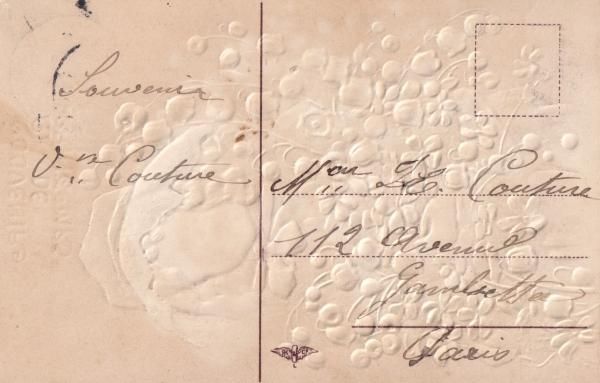 Souvenir
Vve Couture
Mon Couture
112 Avenue
Gambetta
Paris